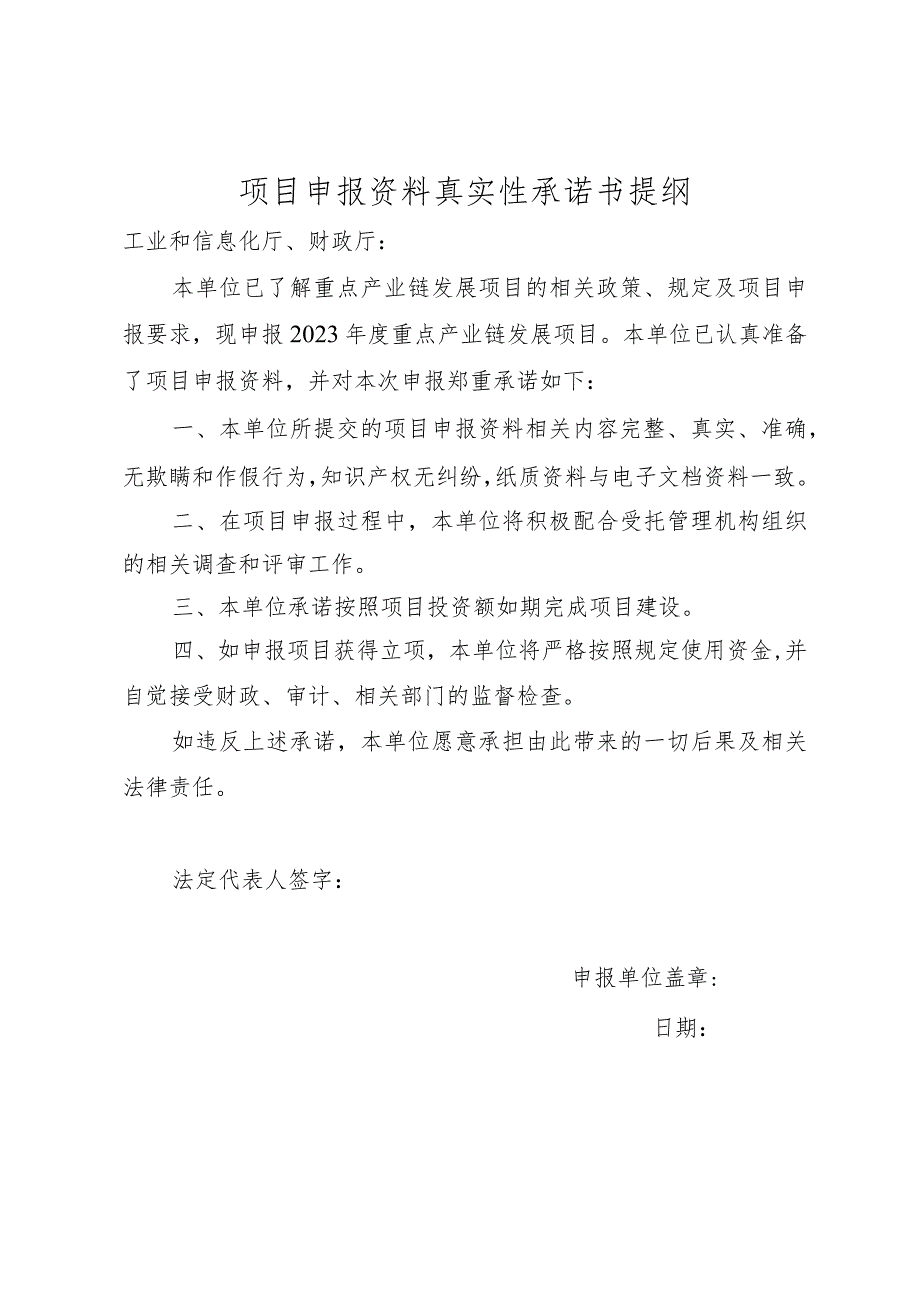 项目申报资料真实性承诺书提纲
工业和信息化厅、财政厅：
本单位已了解重点产业链发展项目的相关政策、规定及项目申
报要求，现申报2023年度重点产业链发展项目。本单位已认真准备
了项目申报资料，并对本次申报郑重承诺如下：
一、本单位所提交的项目申报资料相关内容完整、真实、准确，
无欺瞒和作假行为,知识产权无纠纷,纸质资料与电子文档资料一致。
二、在项目申报过程中，本单位将积极配合受托管理机构组织
的相关调查和评审工作。
三、本单位承诺按照项目投资额如期完成项目建设。
四、如申报项目获得立项，本单位将严格按照规定使用资金,并
自觉接受财政、审计、相关部门的监督检查。
如违反上述承诺，本单位愿意承担由此带来的一切后果及相关
法律责任。
法定代表人签字：
申报单位盖章:
日期：